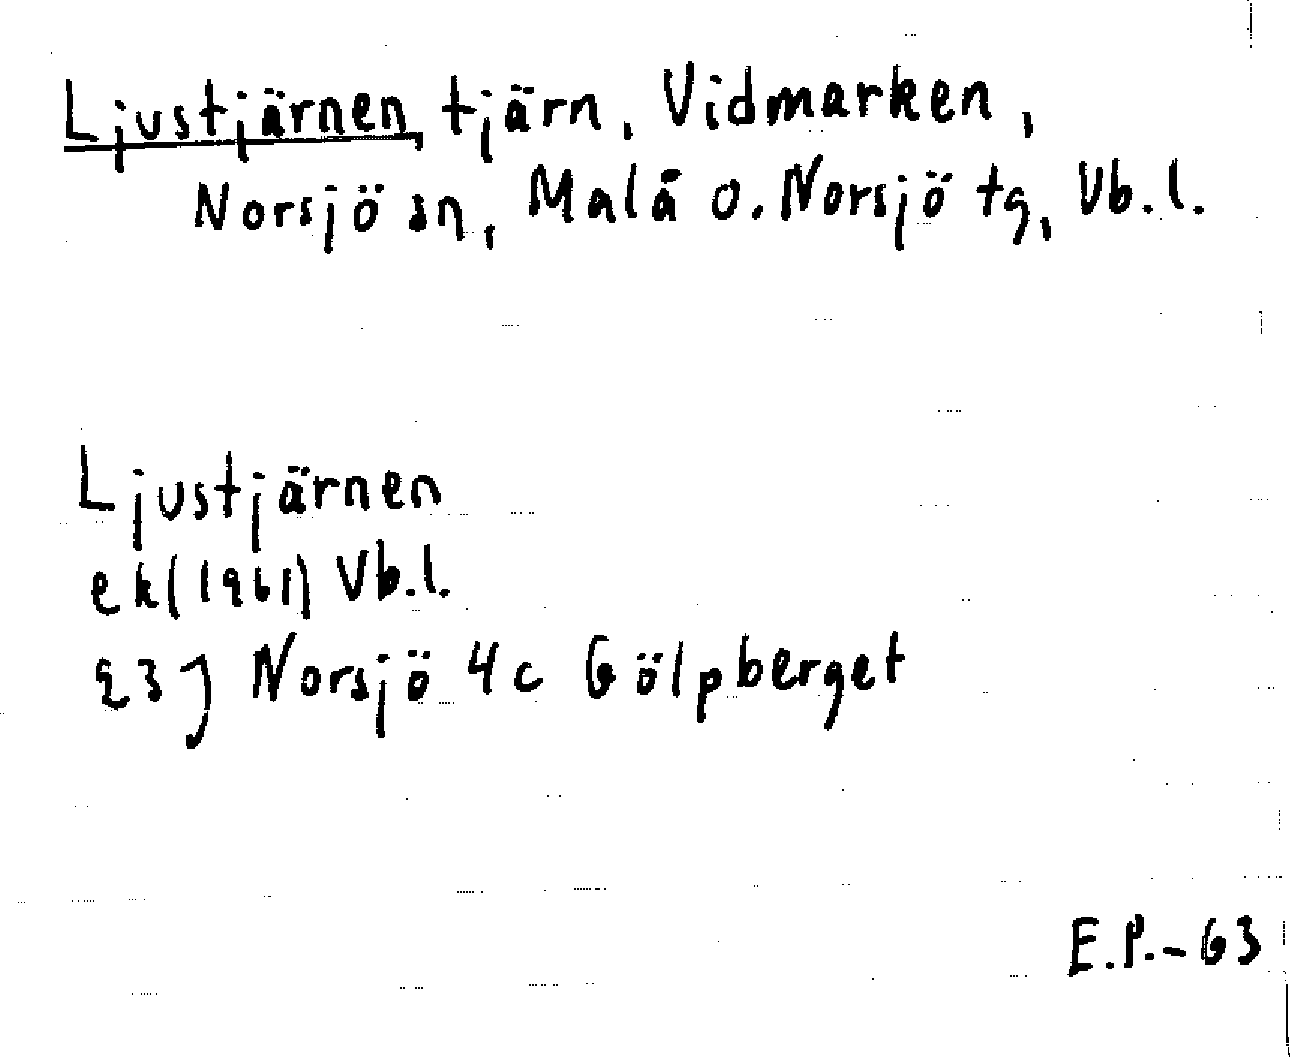 Ljustjärnen, tjärn, Vidmarken,
Norsjö sn, Malå o. Norsjö tg, Vb.l.
Ljustjärnen
ek (1961) Vb.l.
23 J Norsjö 4c Gölpberget
E.P.-63